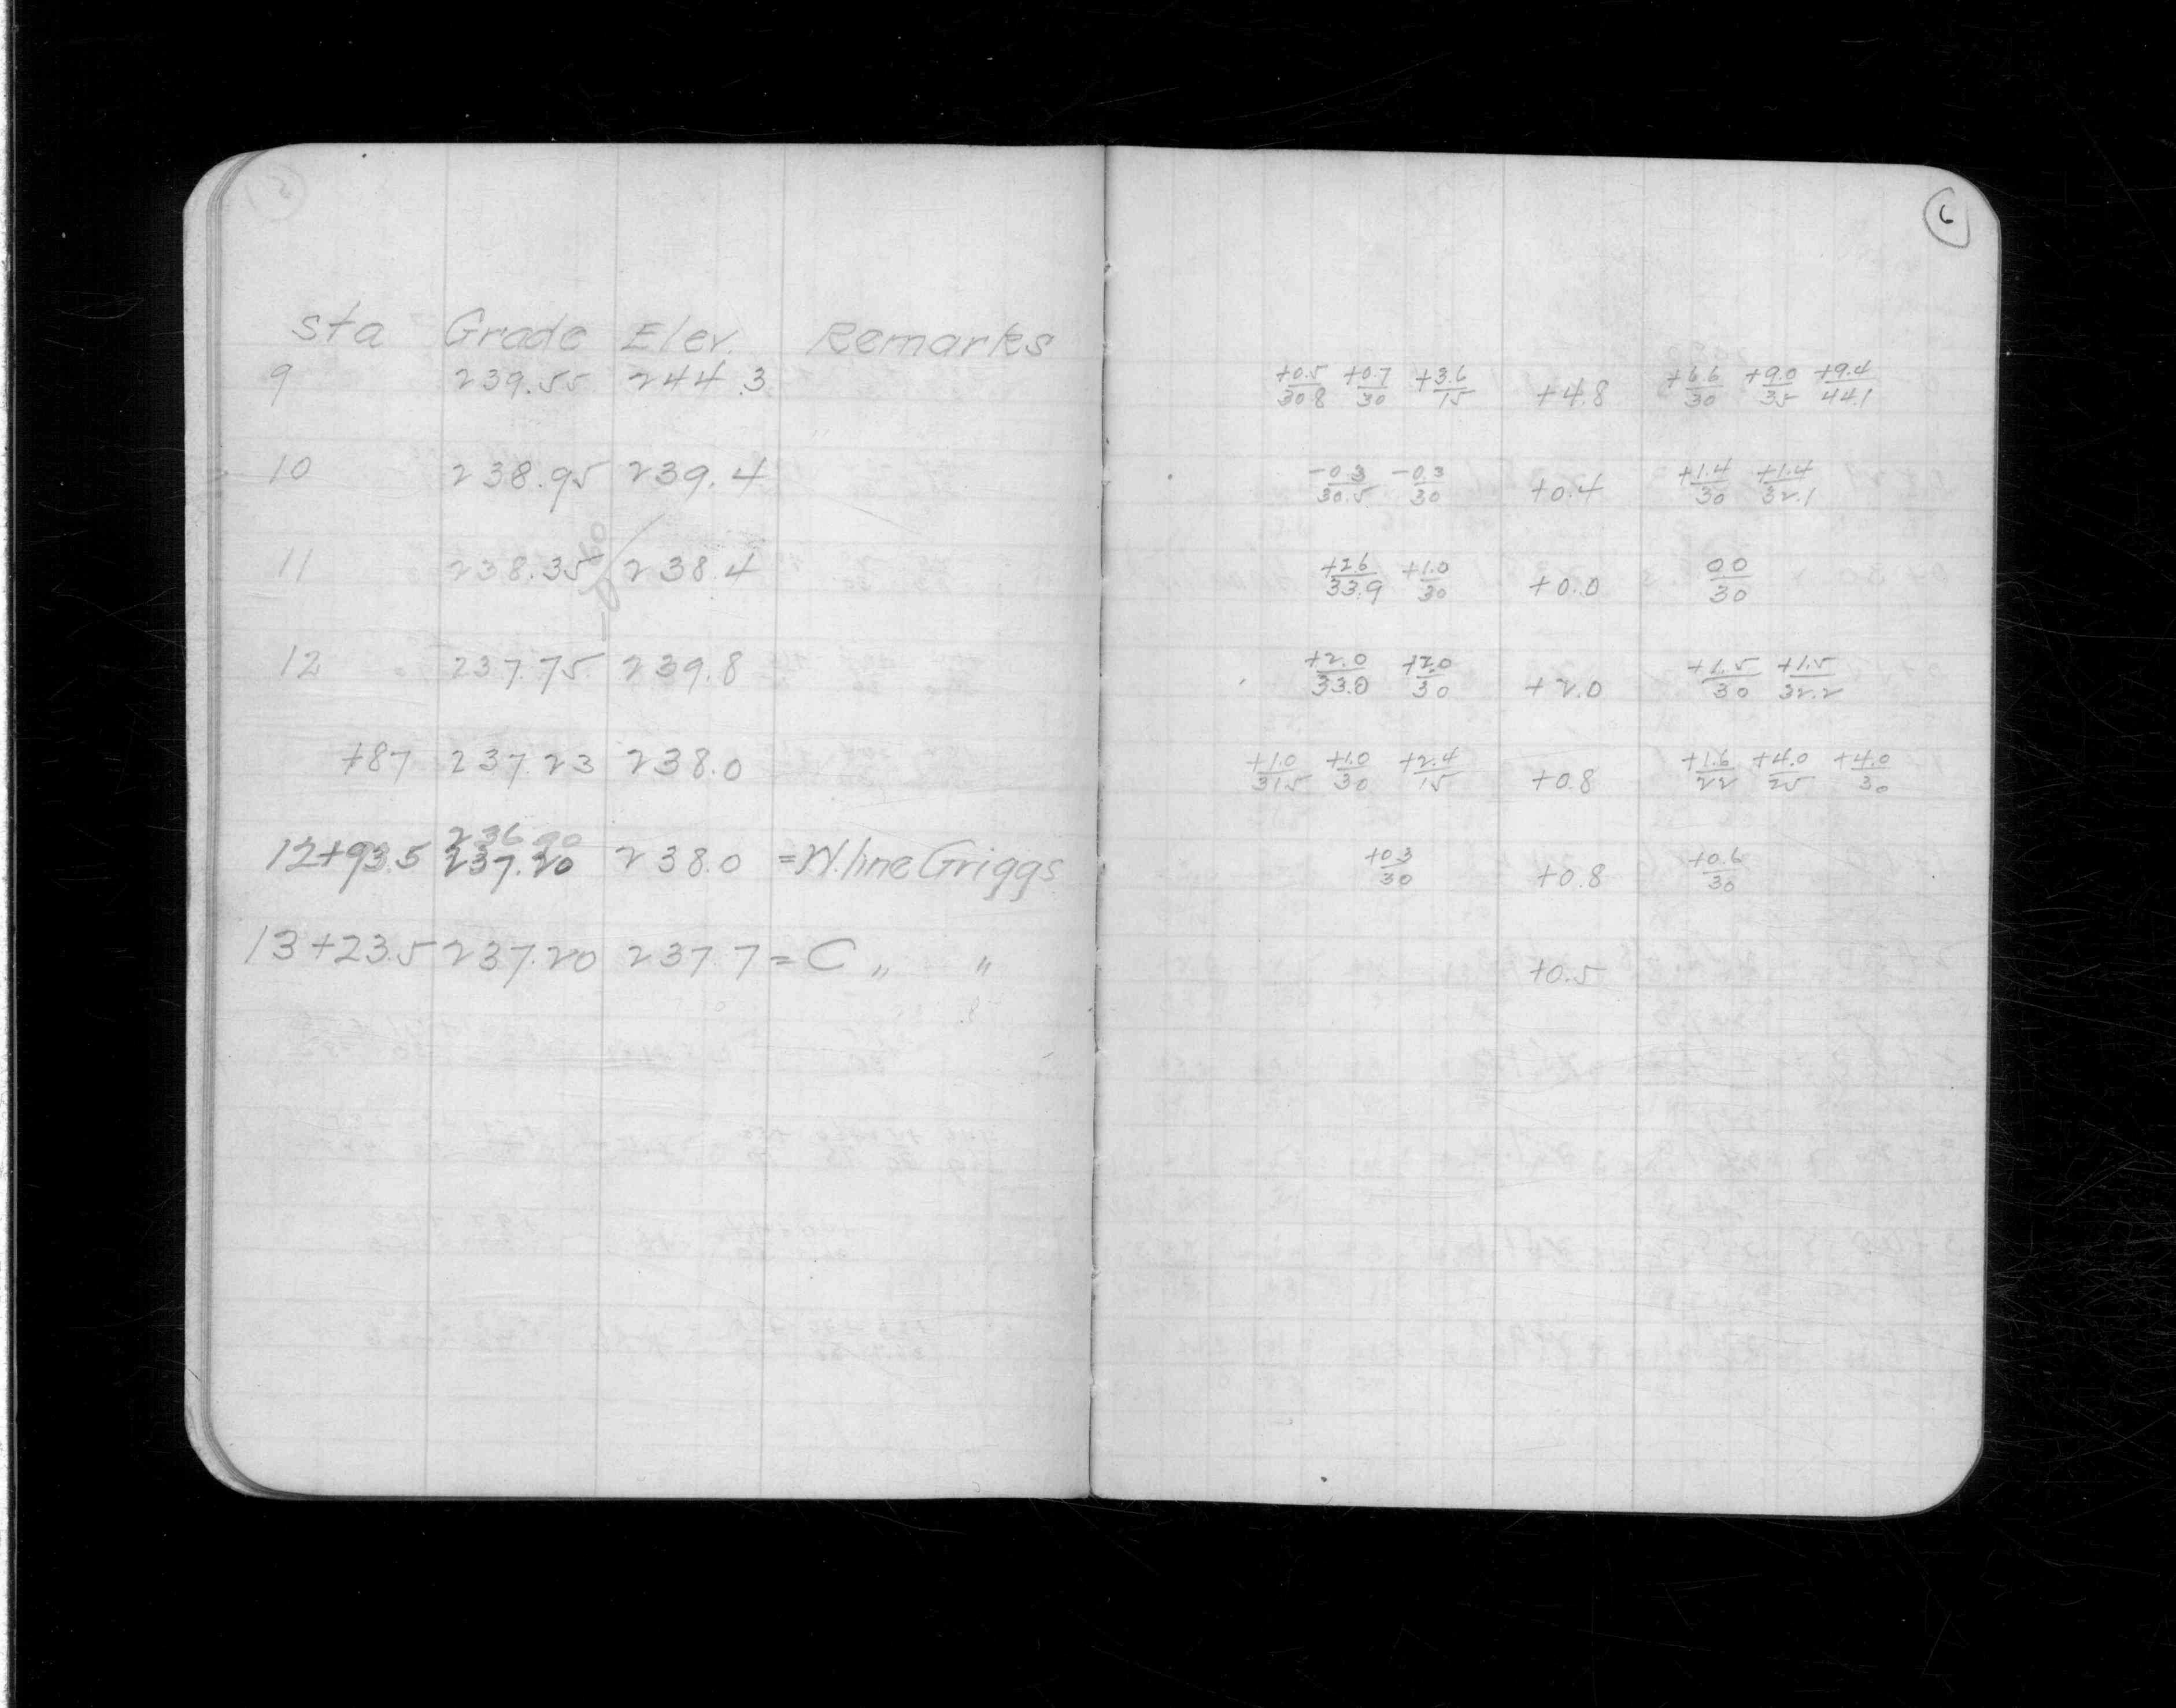 6
Sta Grade Elev. Remarks
9 239.55 244.3 +0.5/30.8 +0.7/30 +3.6/15 +4.8 +6.6/30 +9.0/35 +9.4/44.1
10 238.95 239.4 -0.3/30.5 -0.3/30 +0.4 +1.4/30 +1.4/32.1
11 238.35 238.4 +2.6/33.9 +1.0/30 +0.0 0.0/30
12 237.75 239.8 +2.0/33.0 +2.0/30 +2.0 +1.5/30 +1.5/32.2
+87 237.23 238.0 +1.0/31.5 +1.0/30 +2.4/15 +0.8 +1.6/22 +4.0/25 +4.0/30
236.90
12+93.5 237.20 238.0 =W. line Griggs +0.3/30 +0.8 +0.6/30
13+23.5 237.20 237.7 = C " " +0.5